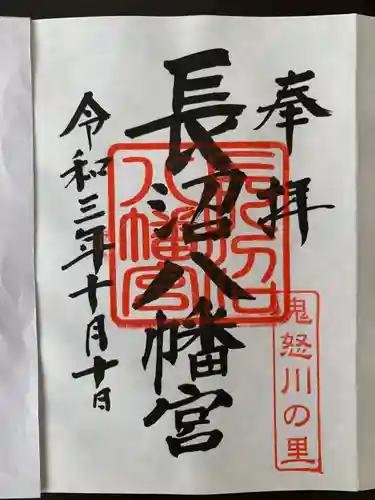 奉拝
鬼怒川の里
長沼八幡宮
長沼八幡宮
令和三年十月十日